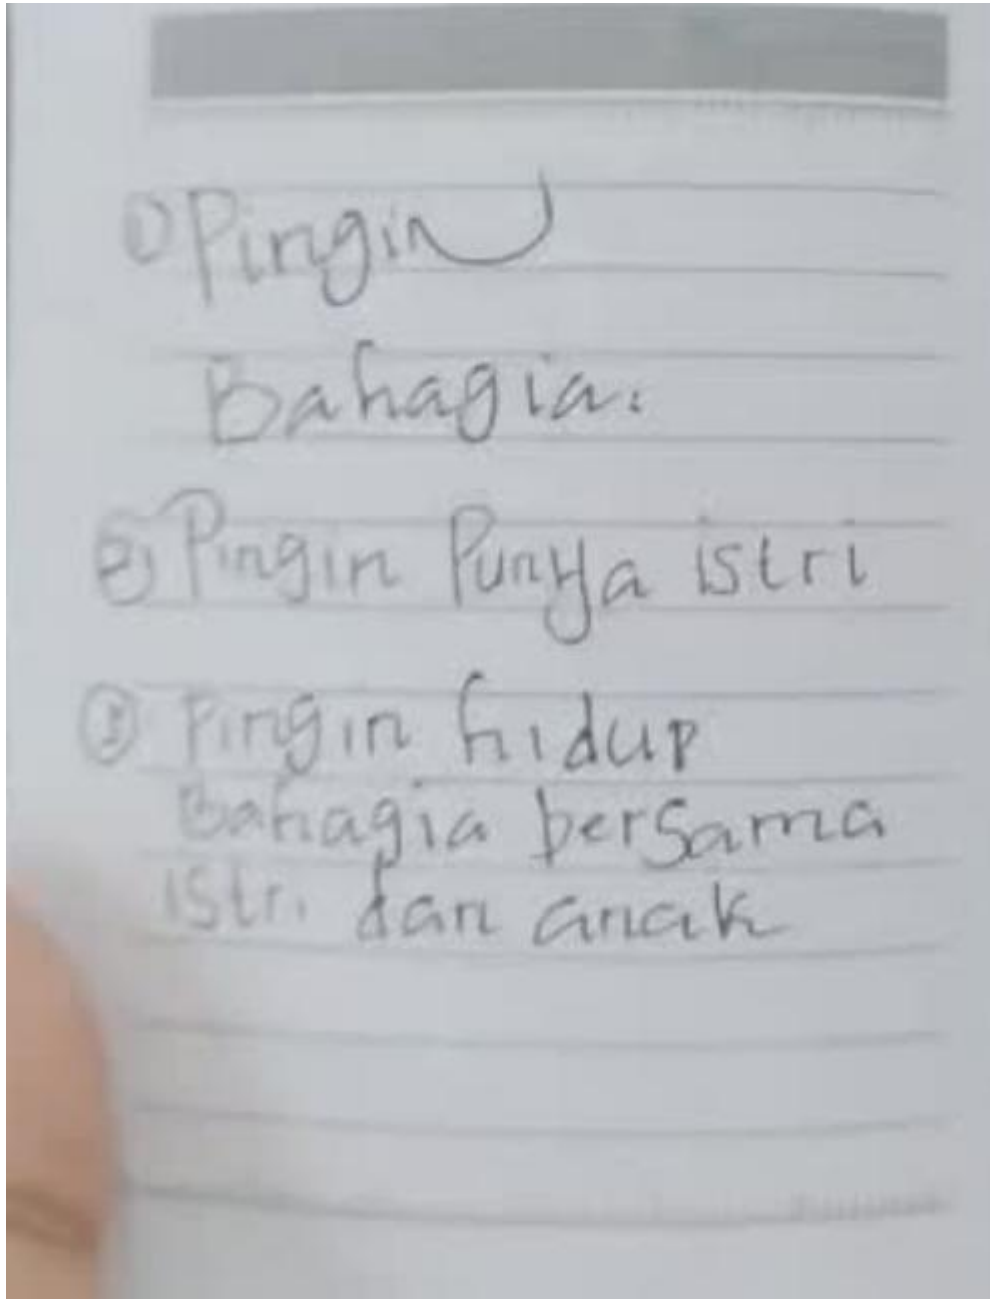 ① Pingin
Bahagia.
② Pingin Punya istri
③ Pingin hidup
Bahagia bersama
istri dan anak